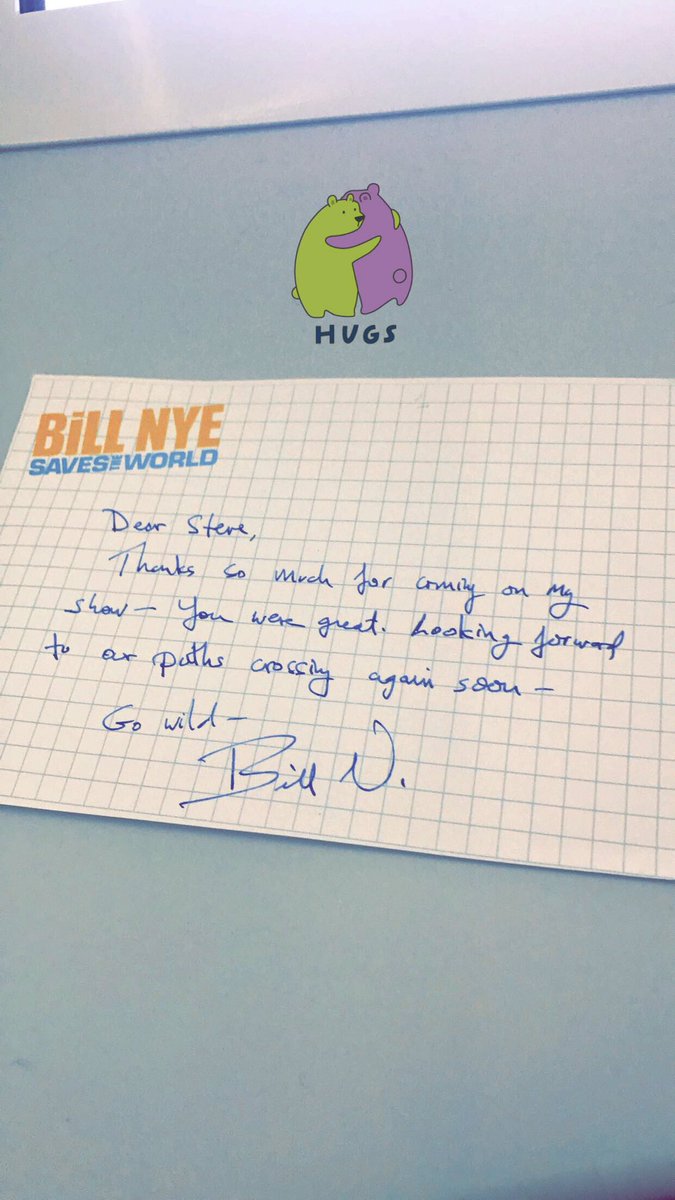 HUGS
BiLL NYE
SAVES THE WORLD
Dear Steve,
Thanks so much for coming on my
show — You were great. Looking forward
to our paths crossing again soon —
Go wild —
Bill N.